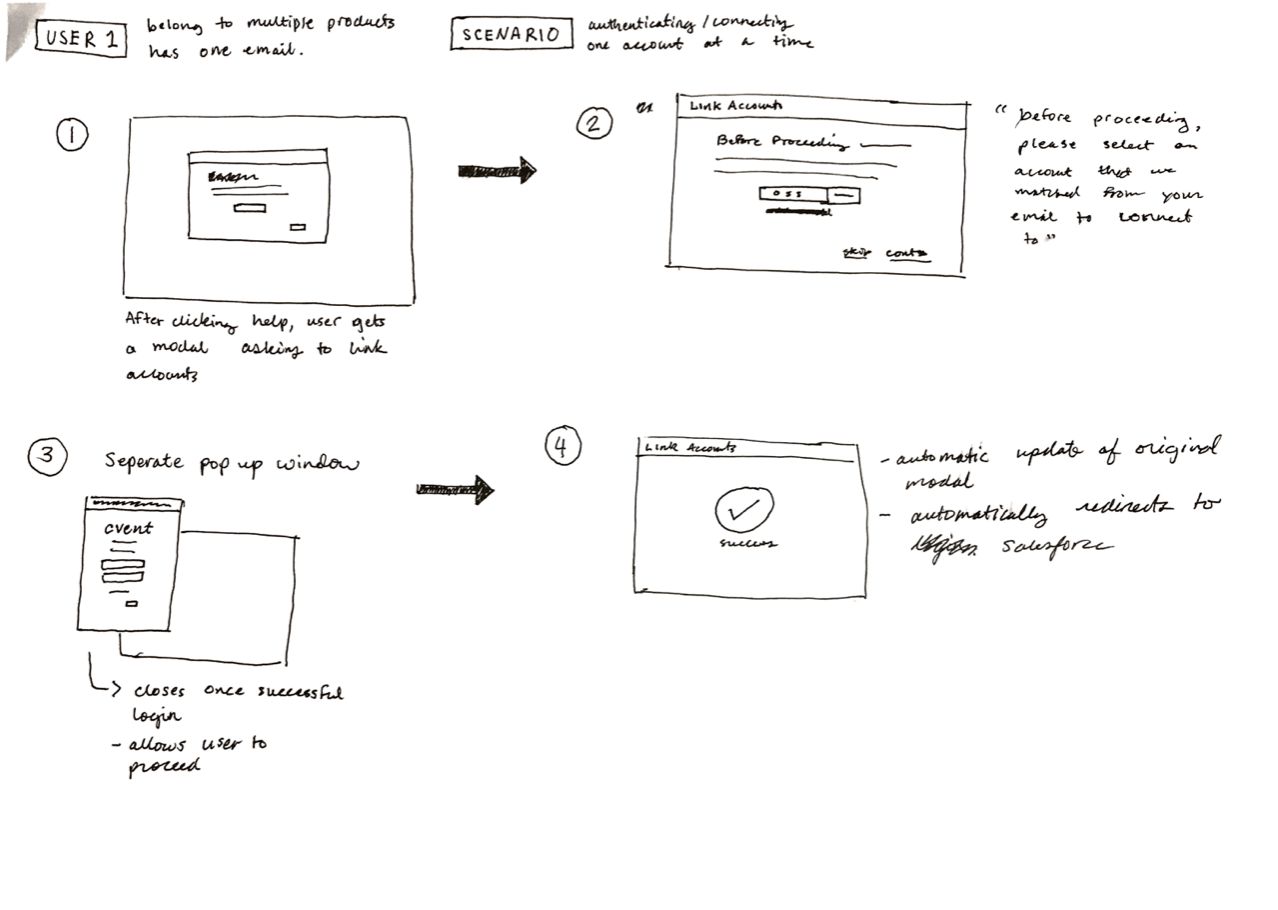 USER 1
belong to multiple products
has one email.
SCENARIO
authenticating/connecting
one account at a time
1
After clicking help, user gets
a modal asking to link
accounts
2
Link Accounts
Before Proceeding
skip
"before proceeding,
please select an
account that we
matched from your
email to connect
to"
3
Seperate pop up window
cvent
closes once successful
login
- allows user to
proceed
4
Link Accounts
success
- automatic update of original
modal
- automatically redirects to
Salesforce